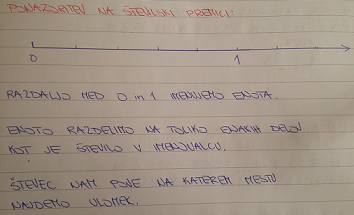 PONAZORITEV NA ŠTEVILSKI PREMICI:
0 1
RAZDALJO MED 0 in 1 IMENUJEMO ENOTA.
ENOTO RAZDELIMO NA TOLIKO ENAKIH DELOV
KOT JE ŠTEVILO V IMENOVALCU.
ŠTEVEC NAM POVE NA KATEREM MESTU
NAJDEMO ULOMEK.